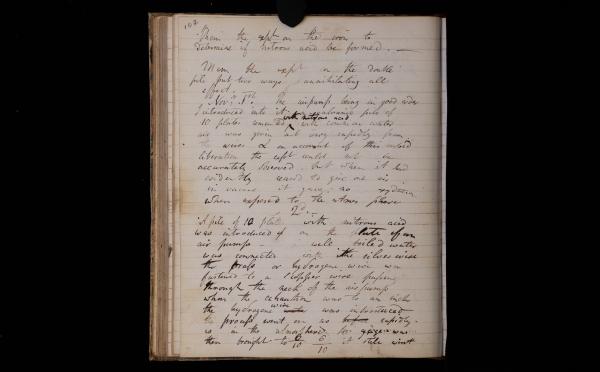 102
Mem the expt on the iron to
determine if nitrous acid be formed. —
Mem the expt on the double
pile put two ways annihilating all
effect.
Novr 1st. The airpump being in good order
I introduced into it a galvanic pile of
10 plates connected with nitrous acid with common water
air was given out very rapidly from
the wires & on account of this
liberation the expt could not be
accurately observed. but when it had
evidently ceased to give out air
in vacuo it gave no
when exposed to the atmosphere
2d
A pile of 10 plates with nitrous acid
was introduced on the plate of an
air pump — well boiled water
was connected with the silver wire
the or hydrogene wire was
fastened to a copper wire passing
through the neck of the airpump
when the exhaustion was to an inch
the hydrogene wire was introduced
the process went on as rapidly
as in the atmosphere. the gage was
then brought to 6/10 it still went